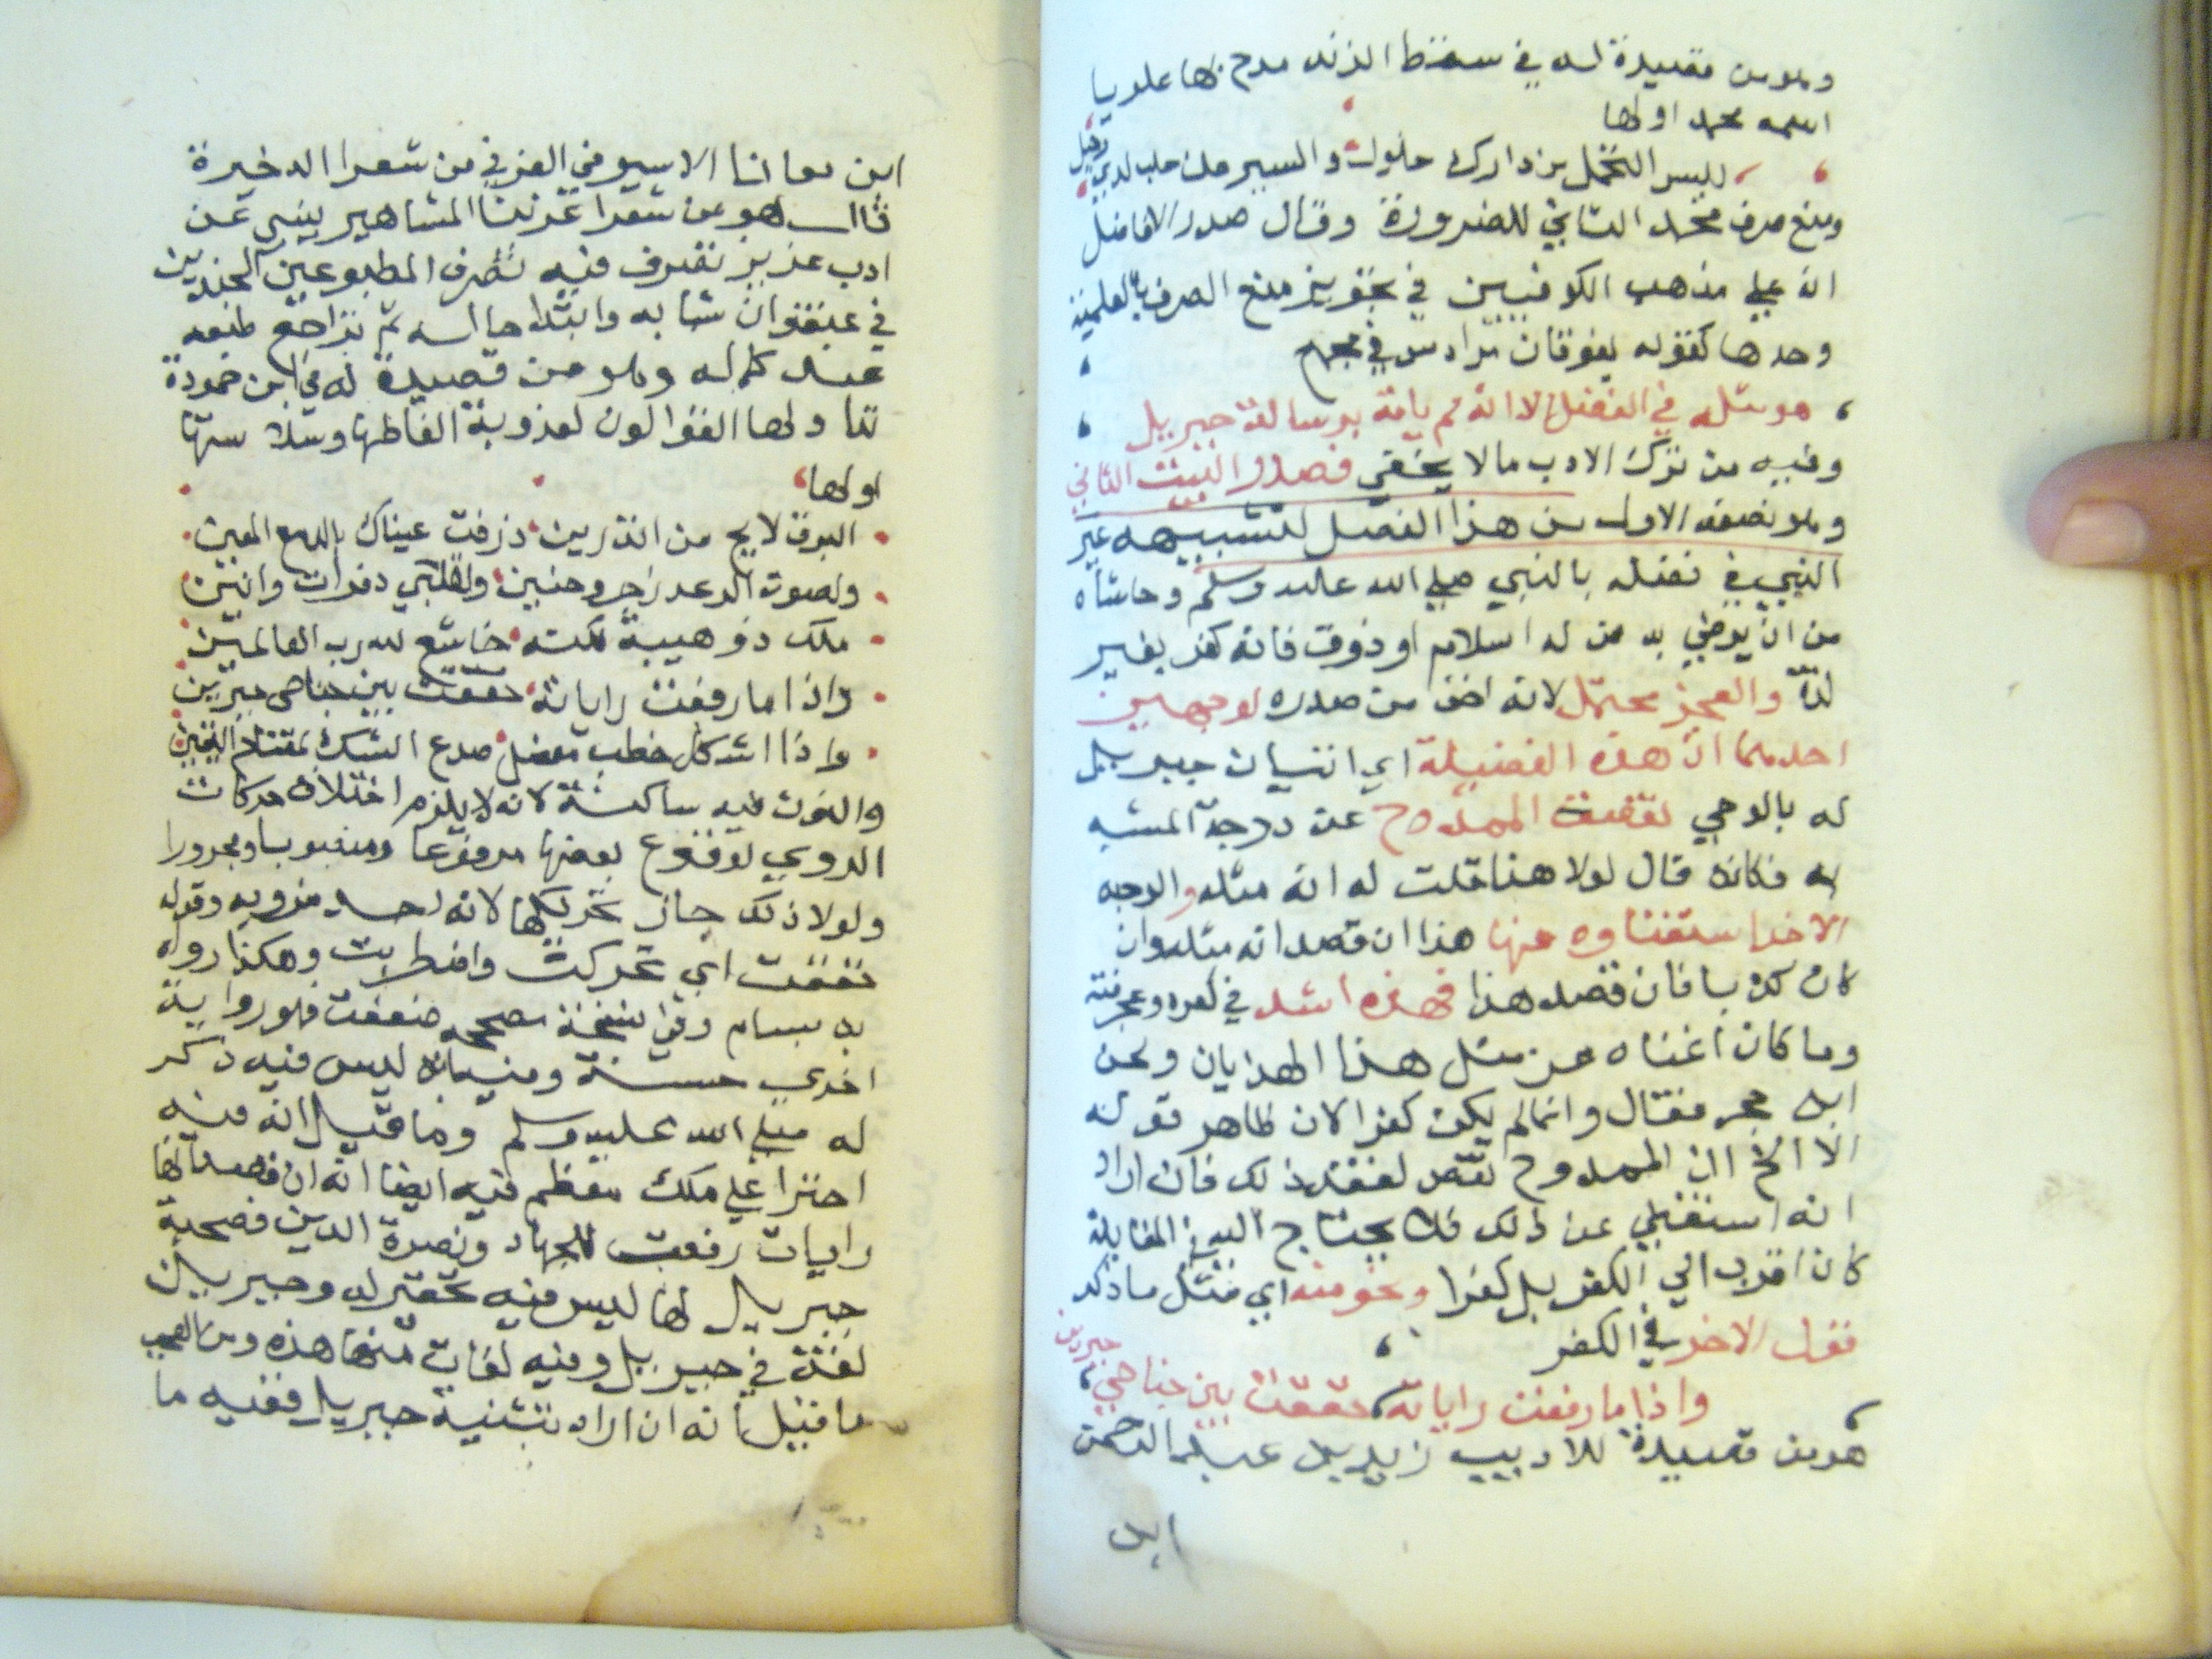 وهو من قصيدة له في سقط الزند مدح بها علويا
اسمه محمد اولها
ومنع صرف محمد الثاني للضرورة وقال صدر الافاضل
انه علي مذهب الكوفيين في تجويز منع الصرف بالعلمية
وحدها كقوله يفوقان مرداس في مجمع
هو مثله في الفضل الا انه لم ياته برسالة جبريل
وفيه من ترك الادب ما لا يخفي فصدر البيت الثاني
وهو نصفه الاول من هذا الفصل لتشبيهه غير
النبي في فضله بالنبي صلي الله عليه وسلم وحاشاه
من ان يرضي به من له اسلام او ذوق فانه كفر بغير
لذة والعجز محتمل لانه اخف من صدره لوجهين
احدهما ان هذه الفضيلة اي اتيان جبريل
له بالوحي نقصت الممدوح عن درجة المشبه
به فكانه قال لولا هذا قلت له انه مثله والوجه
الاخر استغناوه عنها هذا ان قصد انه مثله وان
كان كذبا فان قصد هذا فهذه اشد في كفره وعجرفته
وما كان اغناه عن مثل هذا الهذيان وعن
ابن حجر فقال وانما لم يكن كفرا لان ظاهر قوله
الا الخ ان الممدوح نقص لفقد ذلك فان اراد
انه استغني عن ذلك فلا يحتاج اليه في المقابلة
كان اقرب الي الكفر بل كفرا ونحو منه اي مثل ما ذكر
قول الاخر في الكفر
واذا ما رفعت راياته خفقت بين جناحي جبرين
هو من قصيدة للاديب زيد بن عبد الرحمن
ابن
ابن معانا الاسيوفي العزفي من شعرا الدخيرة
قال هو من شعرا غربنا المشاهير ينبي عن
ادب عزيز تصرف فيه تصرف المطبوعين المجندين
في عنفوان شبابه وابتدا حاله ثم تراجع طبعه
عند كلاله وهو من قصيدة له في ابن حمودة
تداولها القوالون لعذوبة الفاظها وسلاستها
اولها
البرق لايح من اندرين ذرفت عيناك بالدمع المعين
ولصوت الرعد زجر وحنين ولقلبي زفرات وانين
ملك ذو هيبة لكنه خاشع لله رب العالمين
واذا ما رفعت راياته خفقت بين جناحي جبرين
واذا اشكل خطب معضل صدع الشك بمفتاح اليقين
والنون فيه ساكنة لانه لا يلزم اختلاف حركات
الروي لوقوع بعضها مرفوعا ومنصوبا ومجرورا
ولولا ذلك جاز تحريكها لانه احد ضروبه وقوله
خفقت اي تحركت واضطربت وهكذا رواه
بن بسام وفي نسخة مصححه ضعفت فهو رواية
اخري حسنة ومنيمانه ليس فيه ذكر
له صلي الله عليه وسلم وما قيل انه فيه
اجترا علي ملك معظم فيه ايضا انه ان قصد انها
رايات رفعت للجهاد ونصرة الدين فصحبة
جبريل لها ليس فيه تحقير له وجبرين
لغة في جبريل وفيه لغات منها هذه ومن العجب
ما قيل انه ان اراد تثنية جبريل ففيه ما